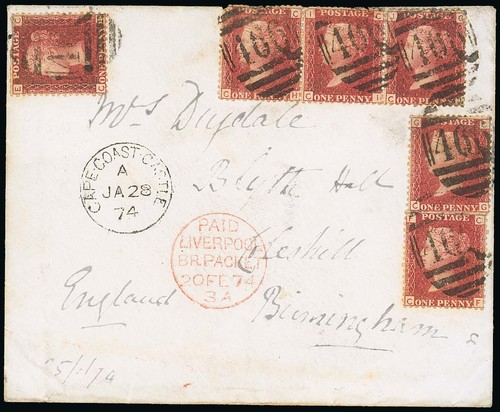 POSTAGE
ONE PENNY
466
POSTAGE
ONE PENNY
466
POSTAGE
ONE PENNY
466
POSTAGE
ONE PENNY
Mrs Dugdale
CAPE-COAST-CASTLE
A
JA 28
74
Blythe Hall
POSTAGE
466
ONE PENNY
PAID
LIVERPOOL
BR. PACKET
20 FE 74
3A
Coleshill
POSTAGE
466
ONE PENNY
England
Birmingham